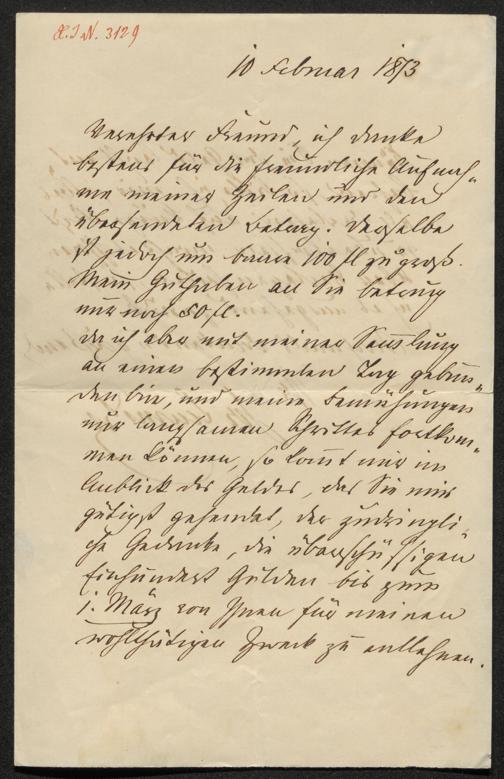 I.N. 3129
10 Februar 1873
Verehrter Freund, ich danke
bestens für die freundliche Aufnah-
me meiner Zeilen und den
übersendeten Betrag. Derselbe
ist jedoch um baare 100 fl zu groß.
Mein Guthaben an Sie betrug
nur noch 50 fl.
Da ich aber mit meiner Sammlung
an einen bestimmten Tag gebun-
den bin, und meine Bemühungen
nur langsamen Schrittes fortkom-
men können, so kommt mir im
Anblick des Geldes, das Sie mir
gütigst gesendet, der zudringli-
che Gedanke, die überschüssigen
Einhundert Gulden bis zum
1. März von Ihnen für meinen
wohlthätigen Zweck zu entlehnen.